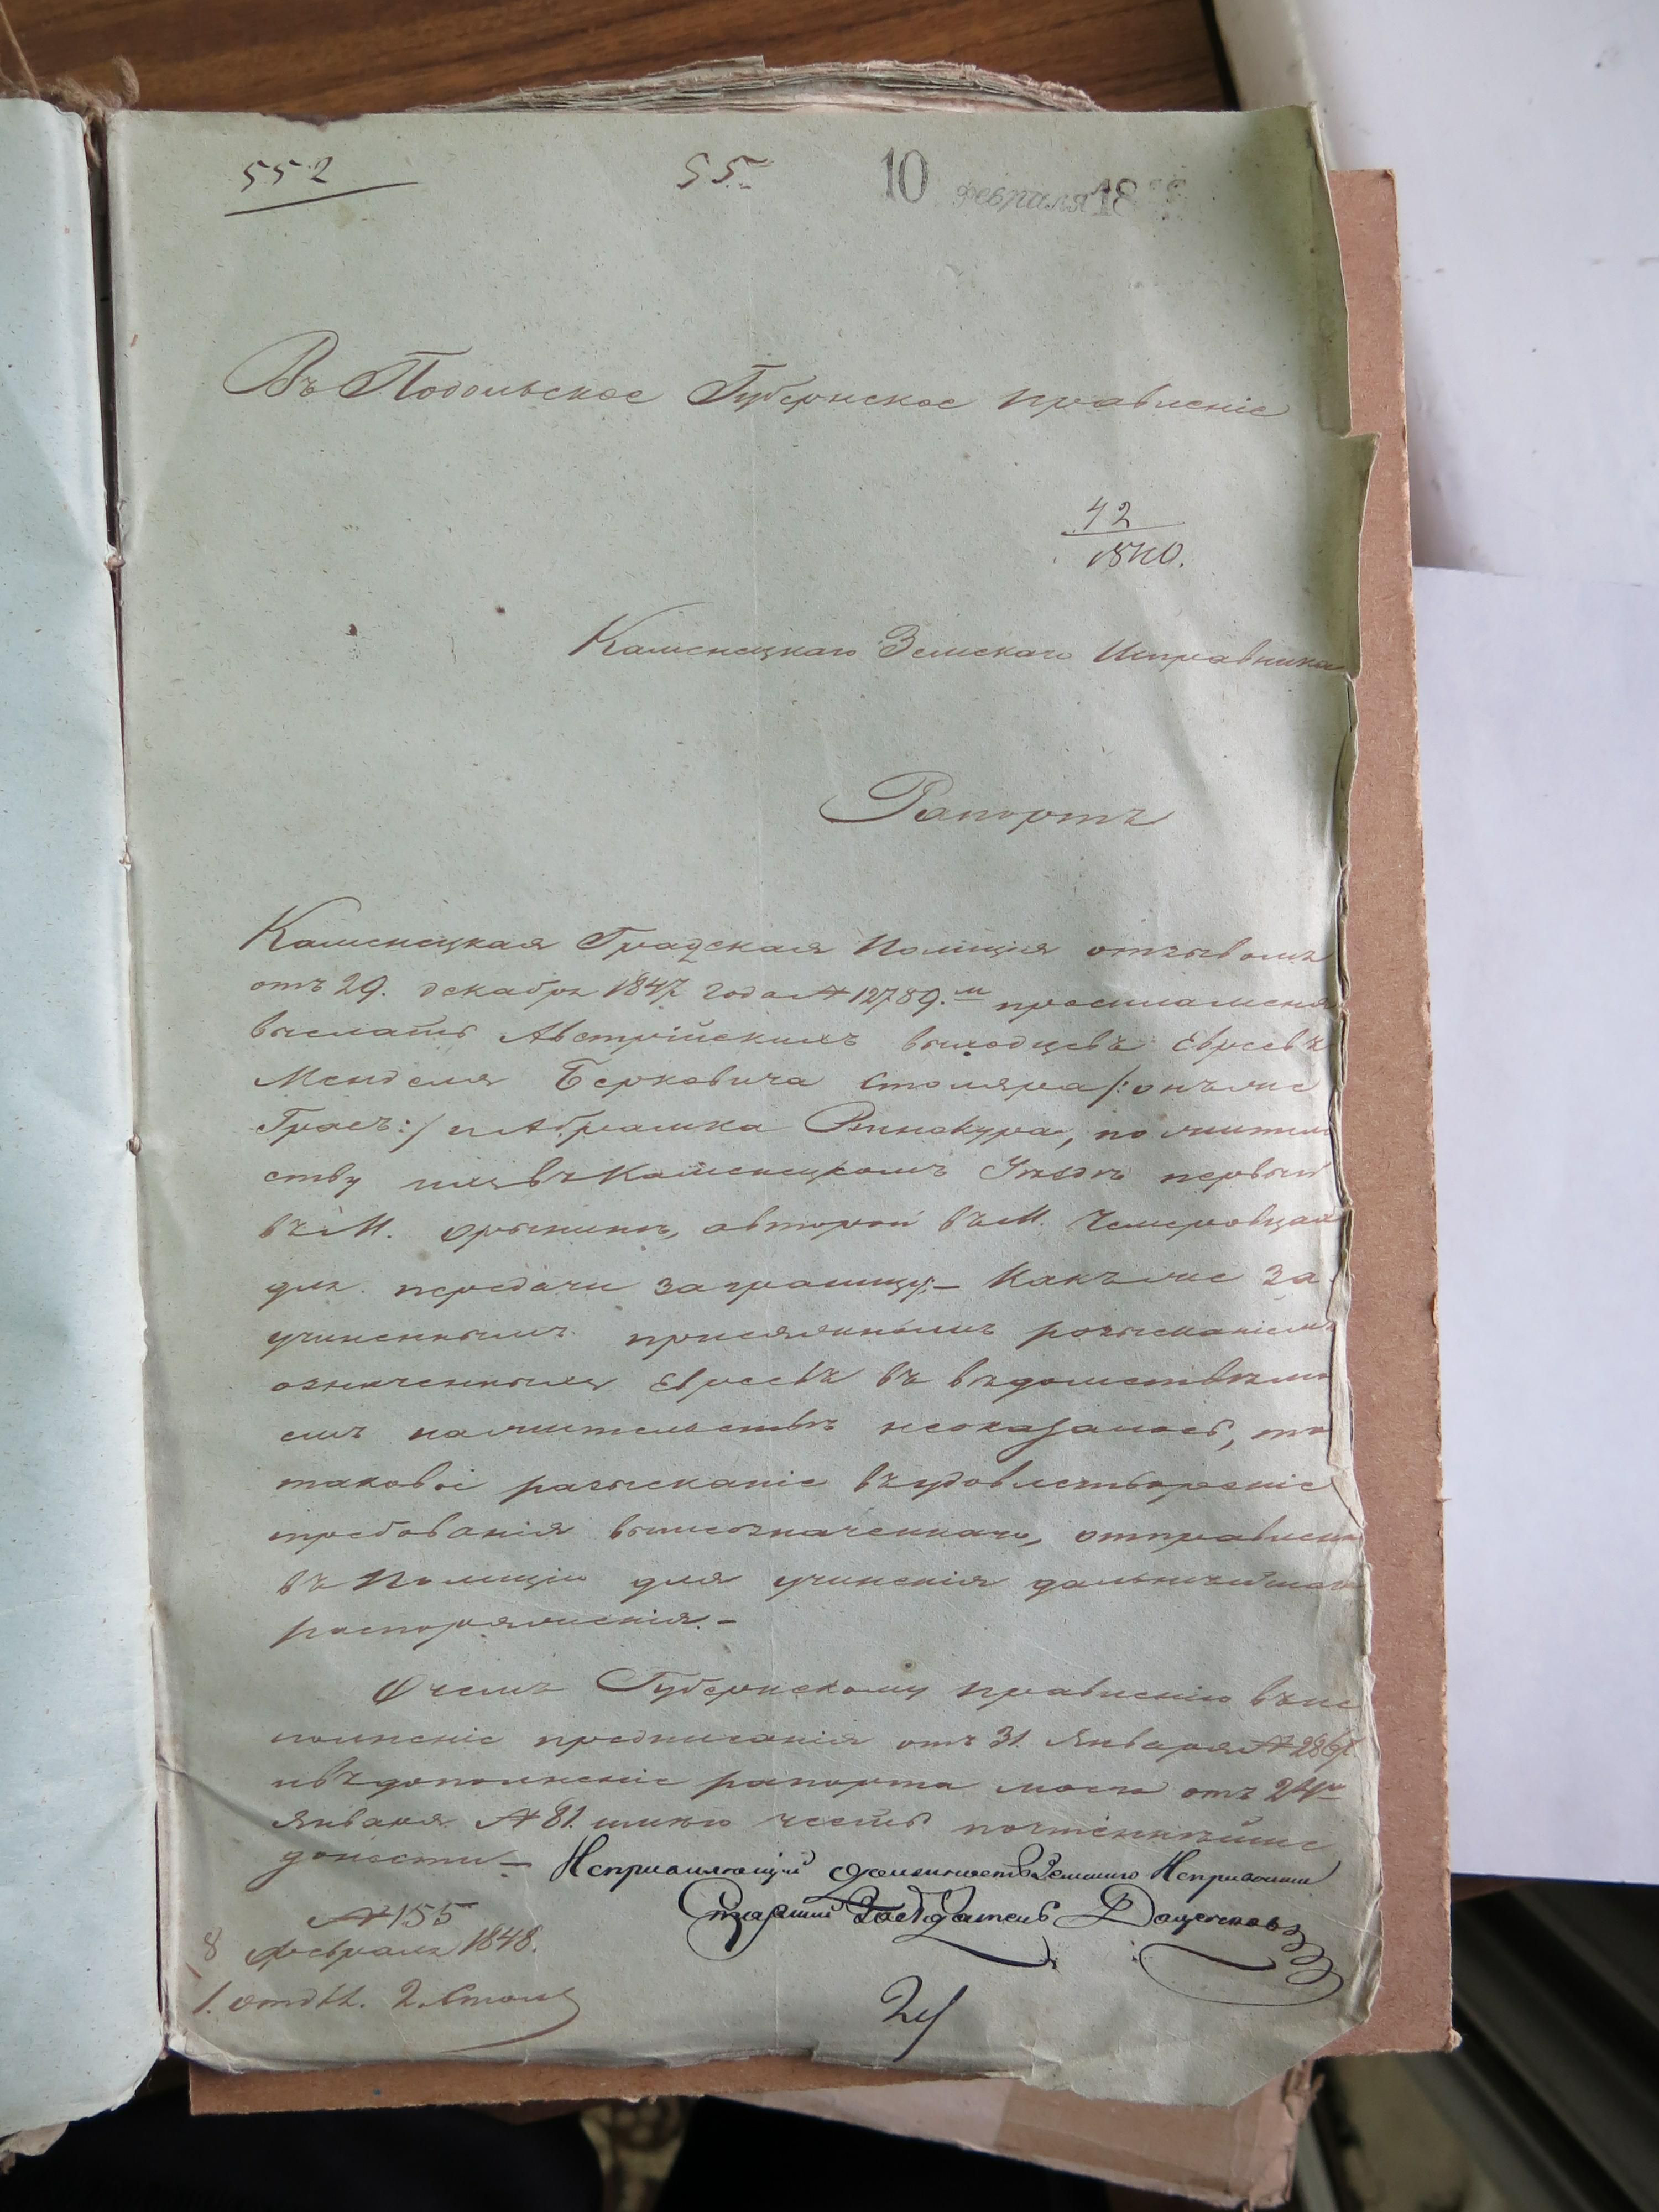 552
55
10 февраля 18
Въ Подольское Губернское правленіе
42
1840.
Каменецкаго Земскаго Исправника
Рапортъ
Каменецкая Градская Полиція отзывомъ
отъ 29. декабря 1847 года № 12789.м просила меня
выслать Австрійскихъ выходцевъ Евреевъ
Менделя Берковича Столяра /: онъ же
Грасъ :/ и Абрамка Винокура, по жител
ству ихъ въ Каменецкомъ Уѣздѣ первый
въ М. Орынинѣ, а второй въ М. Чемеровцах
для передачи заграницу, — Какъ же за
учиненнымъ присяжнымъ розысканіемъ
означенныхъ Евреевъ въ вѣдомствѣ мо
емъ на жительствѣ неоказалось, то
таковоі разысканіе въ удовлетвореніе
требованія вышеозначеннаго, отправлено
въ Полицію для учиненія дальнѣйшаго
распоряженія. —
О чемъ Губернскому правленію во ис
полненіе предписанія отъ 31. Января № 286
и въ дополненіе рапорта моего отъ 24го
Января № 81. имѣю честь почтеннѣйше
донести —
должность Земскаго Исправника
Старшій Засѣдатель
№ 155
8 февраля 1848.
1. отдѣл. 2. Столъ
24